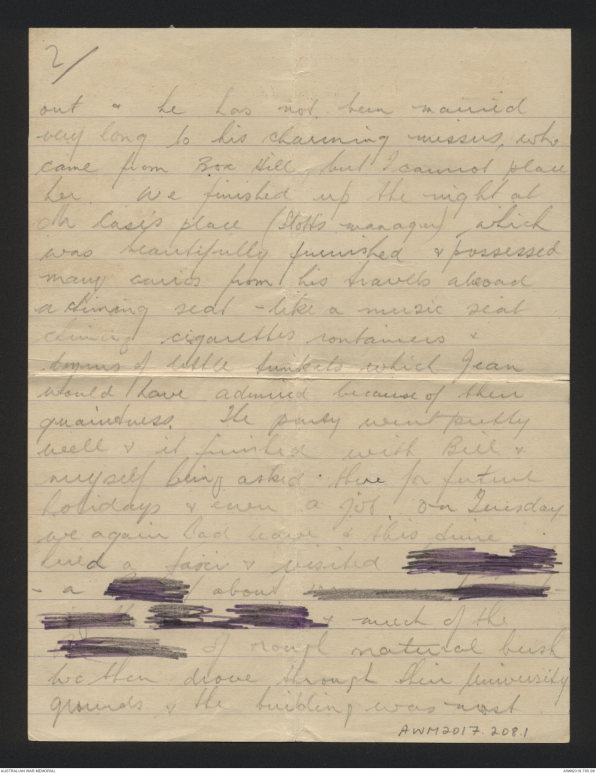 2/
out & he has not been married
very long to his charming missus, who
came from Box Hill, but I cannot place
her. We finished up the night at
place (Stotts manager) which
was beautifully furnished & possessed
many curios from his travels abroad
a chiming seat - like a music seat
chiming cigarettes containers &
of little trinkets which Jean
would have admired because of their
quaintness. The party went pretty
well & it finished with Bill &
myself being asked there for future
holidays & even a job. On Tuesday
we again had leave & this time
hired a taxi & visited
- a about
& much of the
of rough natural bush
We then drove through their University
grounds & the building was most
AWM2017.208.1
AUSTRALIAN WAR MEMORIAL